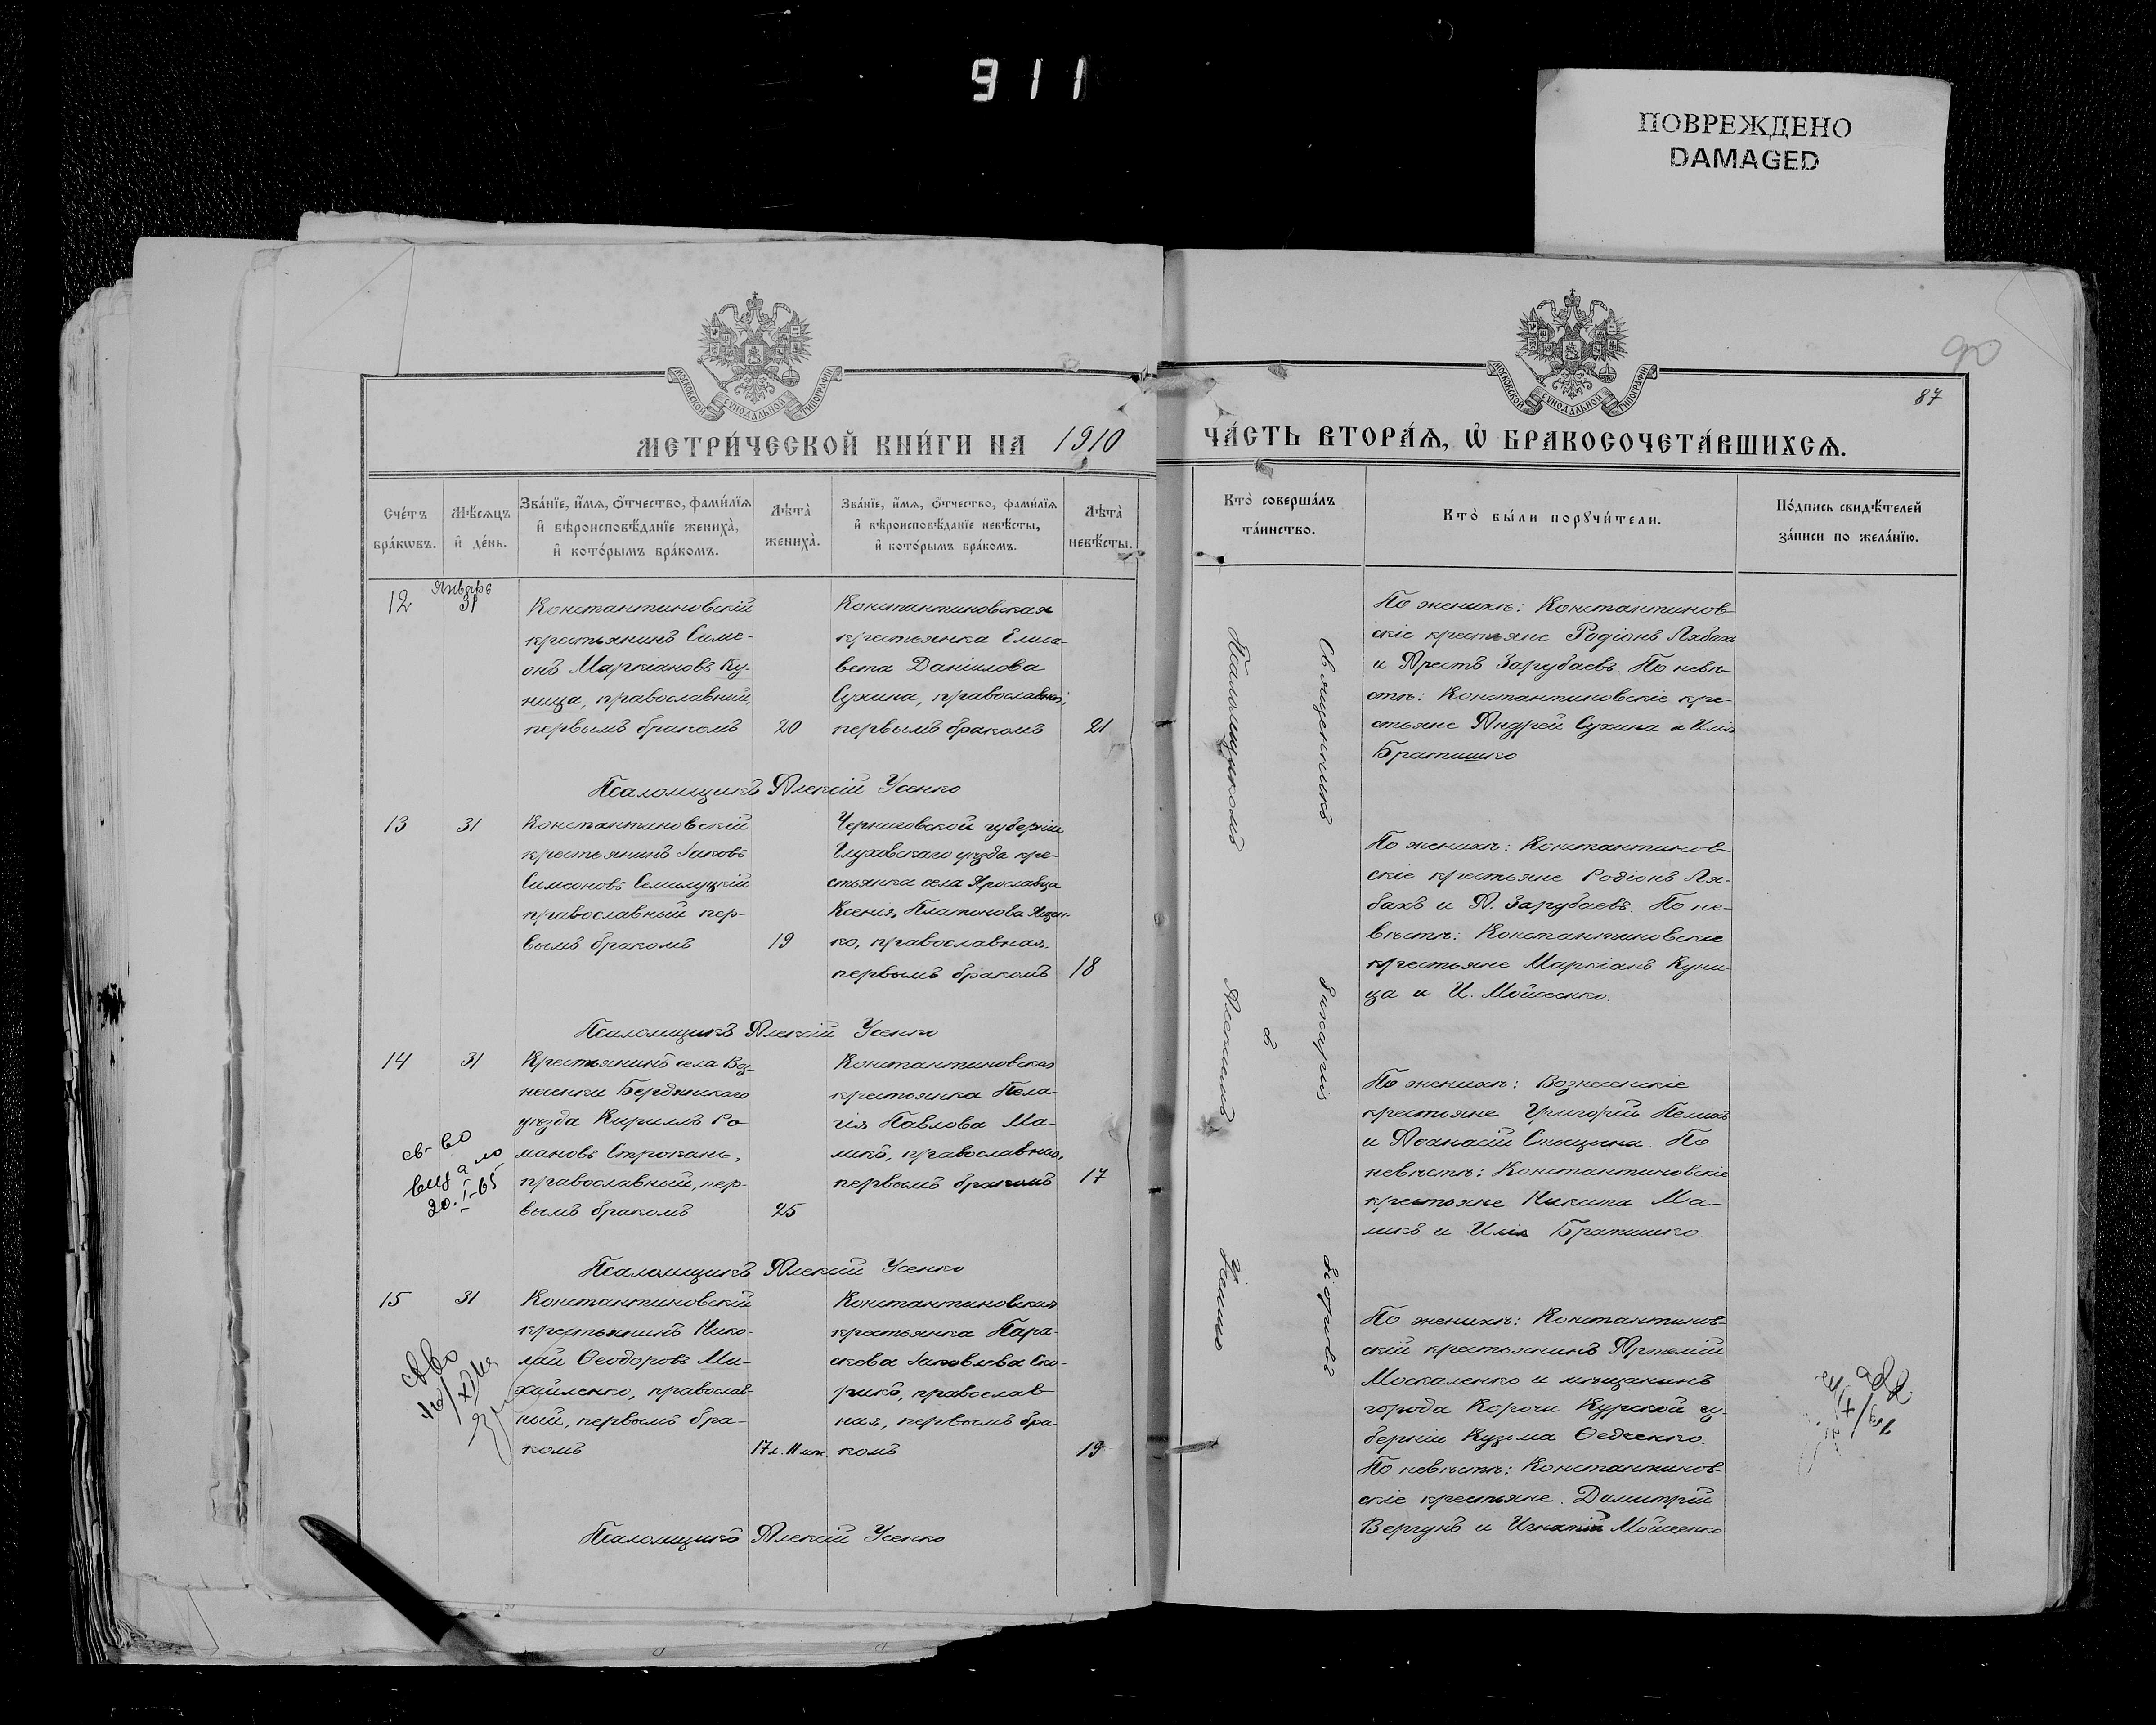 911
ПОВРЕЖДЕНО
DAMAGED
90
87
МОСКОВСКОЙ СУНОДАЛЬНОЙ ТИПОГРАФІИ
МОСКОВСКОЙ СУНОДАЛЬНОЙ ТИПОГРАФІИ
МЕТРИ́ЧЕСКОЙ КНИ́ГИ НА 1910
ЧА́СТЬ ВТОРА́Ѧ, Ѽ БРАКОСОЧЕТА́ВШИХСѦ.
Сче́тъ
бра́кѡвъ.
Мѣ́сяцъ
и҆ де́нь.
Зва́нїе, и҆́мѧ, ѻ҆́тчество, фами́лїѧ
и҆ вѣроисповѣ́данїе жениха̀,
и҆ кото́рымъ бра́комъ.
Лѣта̀
жениха̀.
Зва́нїе, и҆́мѧ, ѻ҆́тчество, фами́лїѧ
и҆ вѣроисповѣ́данїе невѣ́сты,
и҆ кото́рымъ бра́комъ.
Лѣта̀
невѣ́сты.
Кто̀ соверша́лъ
та́инство.
Кто̀ бы́ли порꙋчи́тели.
По́дпись свидѣ́телей
за́писи по жела́нїю.
12
Январь
31
Константиновскій
крестьянинъ Симе-
онъ Маркіановъ Ку-
ница, православный,
первымъ бракомъ
20
Константиновская
крестьянка Елиса-
вета Даніилова
Сухина, православной,
первымъ бракомъ
21
По женихѣ: Константинов-
скіе крестьяне Родіонъ Лябахъ
и Арестъ Зарубаевъ. По невѣ-
стѣ: Константиновскіе кре-
стьяне Андрей Сухина и Илія
Братишко
Псаломщикъ Алексій Усенко
13
31
Константиновскій
крестьянинъ Іаковъ
Симеоновъ Семилуцкій
православный пер-
вымъ бракомъ
19
Черниговской губерніи
Глуховскаго уѣзда кре-
стьянка села Ярославца
Ксенія Платонова Яцен-
ко, православная.
первымъ бракомъ
18
По женихѣ: Константинов-
скіе крестьяне Родіонъ Ля-
бахъ и А. Зарубаевъ. По не-
вѣстѣ: Константиновскіе
крестьяне Маркіанъ Куни-
ца и И. Мойсенко.
Псаломщикъ Алексій Усенко
14
31
Крестьянинъ села Воз-
несенки Бердянскаго
уѣзда Кириллъ Ро-
мановъ Строкань,
православный, пер-
вымъ бракомъ
25
Константиновская
крестьянка Пела-
гія Павлова Ма-
ликъ, православная,
первымъ бракомъ
17
По женихѣ: Вознесенскіе
крестьяне Григорій Пелихъ
и Аѳанасій Спицына. По
невѣстѣ: Константиновскіе
крестьяне Никита Ма-
ликъ и Илія Братишко.
св-во
выдано
20.I-65
Псаломщикъ Алексій Усенко
15
31
Константиновскій
крестьянинъ Нико-
лай Ѳеодоровъ Ми-
хайленко, православ-
ный, первымъ бра-
комъ
17 л. 11 мѣс.
Константиновская
крестьянка Пара-
скева Іаковлева Ско-
рикъ, православ-
ная, первымъ бра-
комъ
19
По женихѣ: Константинов-
скій крестьянинъ Артемій
Москаленко и мѣщанинъ
города Корочи Курской гу-
берніи Кузьма Ѳедченко.
По невѣстѣ: Константинов-
скіе крестьяне. Димитрій
Вергунъ и Игнатій Мойсенко
Псаломщикъ Алексій Усенко
Священникъ Захарія
съ
Псаломщикомъ Алексіемъ Усенко